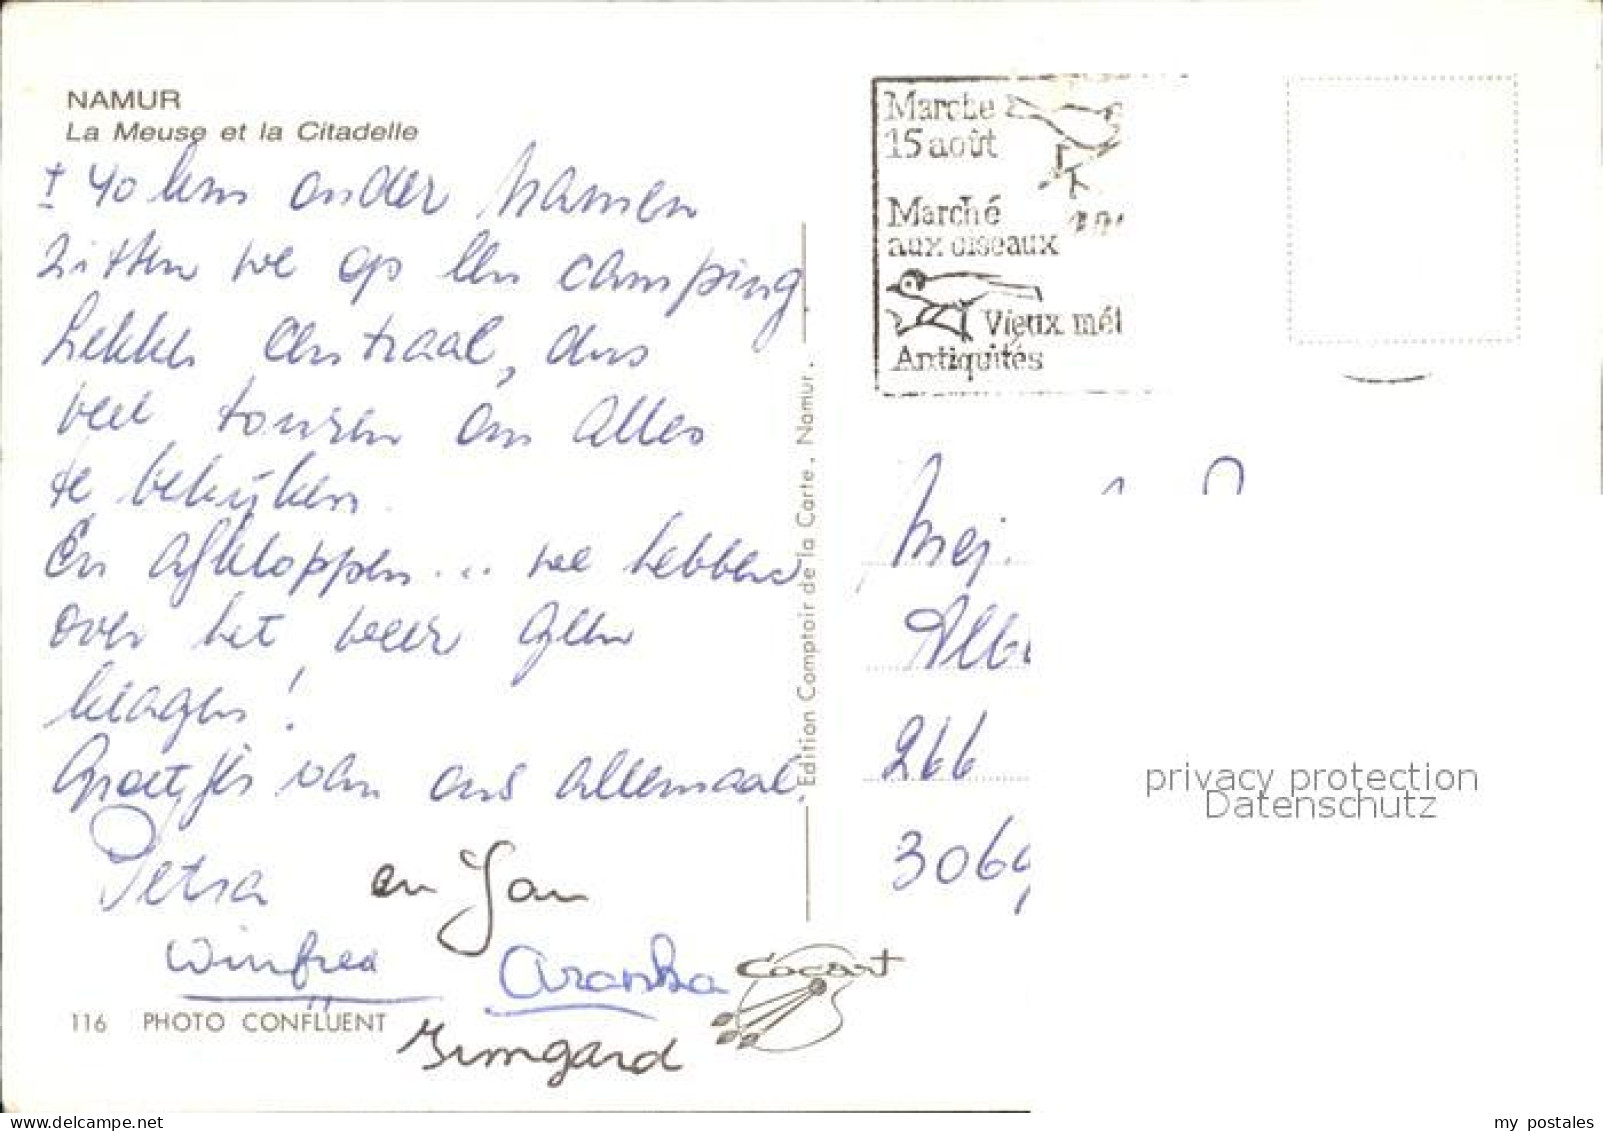 NAMUR
La Meuse et la Citadelle
± 40 km onder Namen
zitten we op een camping
Lekker centraal, dus
veel touren om alles
te bekijken.
En afkloppen... we hebben
over het weer geen
klagen!
Groetjes van ons allemaal.
Petra en Jan
Winfred
Aranka
Irmgard
116 PHOTO CONFLUENT
Edition Comptoir de la Carte, Namur.
Cocart
Marche
15 août
Marché
aux oiseaux
Vieux mét
Antiquités
Mej.
Albe
266
3069
privacy protection
Datenschutz
my postales